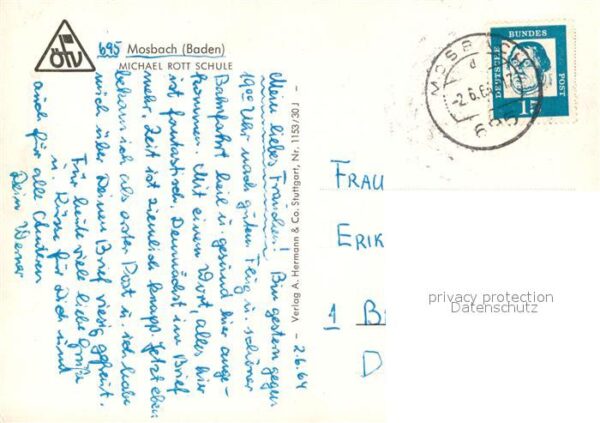 öfv
695 Mosbach (Baden)
MICHAEL ROTT SCHULE
2.6.64
Mein liebes Frauchen! Bin gestern gegen
19 00 Uhr nach gutem Flug u. schöner
Bahnfahrt heil u. gesund hier ange-
kommen. Mit einem Wort, alles hier
ist fantastisch. Demnächst im Brief
mehr, Zeit ist ziemlich knapp. Jetzt eben
bekam ich als erster Post u. ich habe
mich über Deinen Brief riesig gefreut.
Für heute viele liebe Grüße
u. Küsse für Dich und
auch für alle
Dein Werner
- Verlag A. Herrmann & Co. Stuttgart, Nr. 1153/30 J -
DEUTSCHE BUNDES POST
15
MOSBACH
d
-2.6.6
695
FRAU
ERIK
1 B
D
privacy protection
Datenschutz